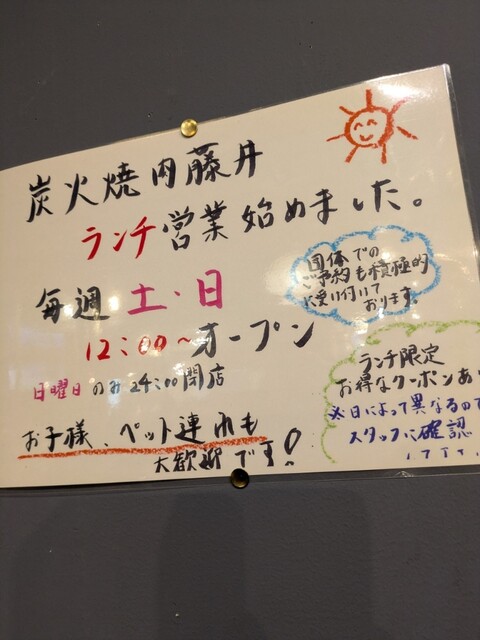 炭火焼肉藤井
ランチ営業始めました。
毎週 土・日
12:00~オープン
日曜日のみ24:00閉店
お子様、ペット連れも
大歓迎です!
団体での
ご予約も積極的
に受け付けて
おります。
ランチ限定
お得なクーポンあ
※日によって異なるので
スタッフに確認